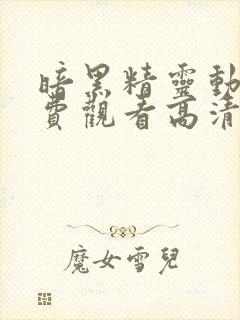 暗黑精靈動
費觀看高清
魔女雪兒